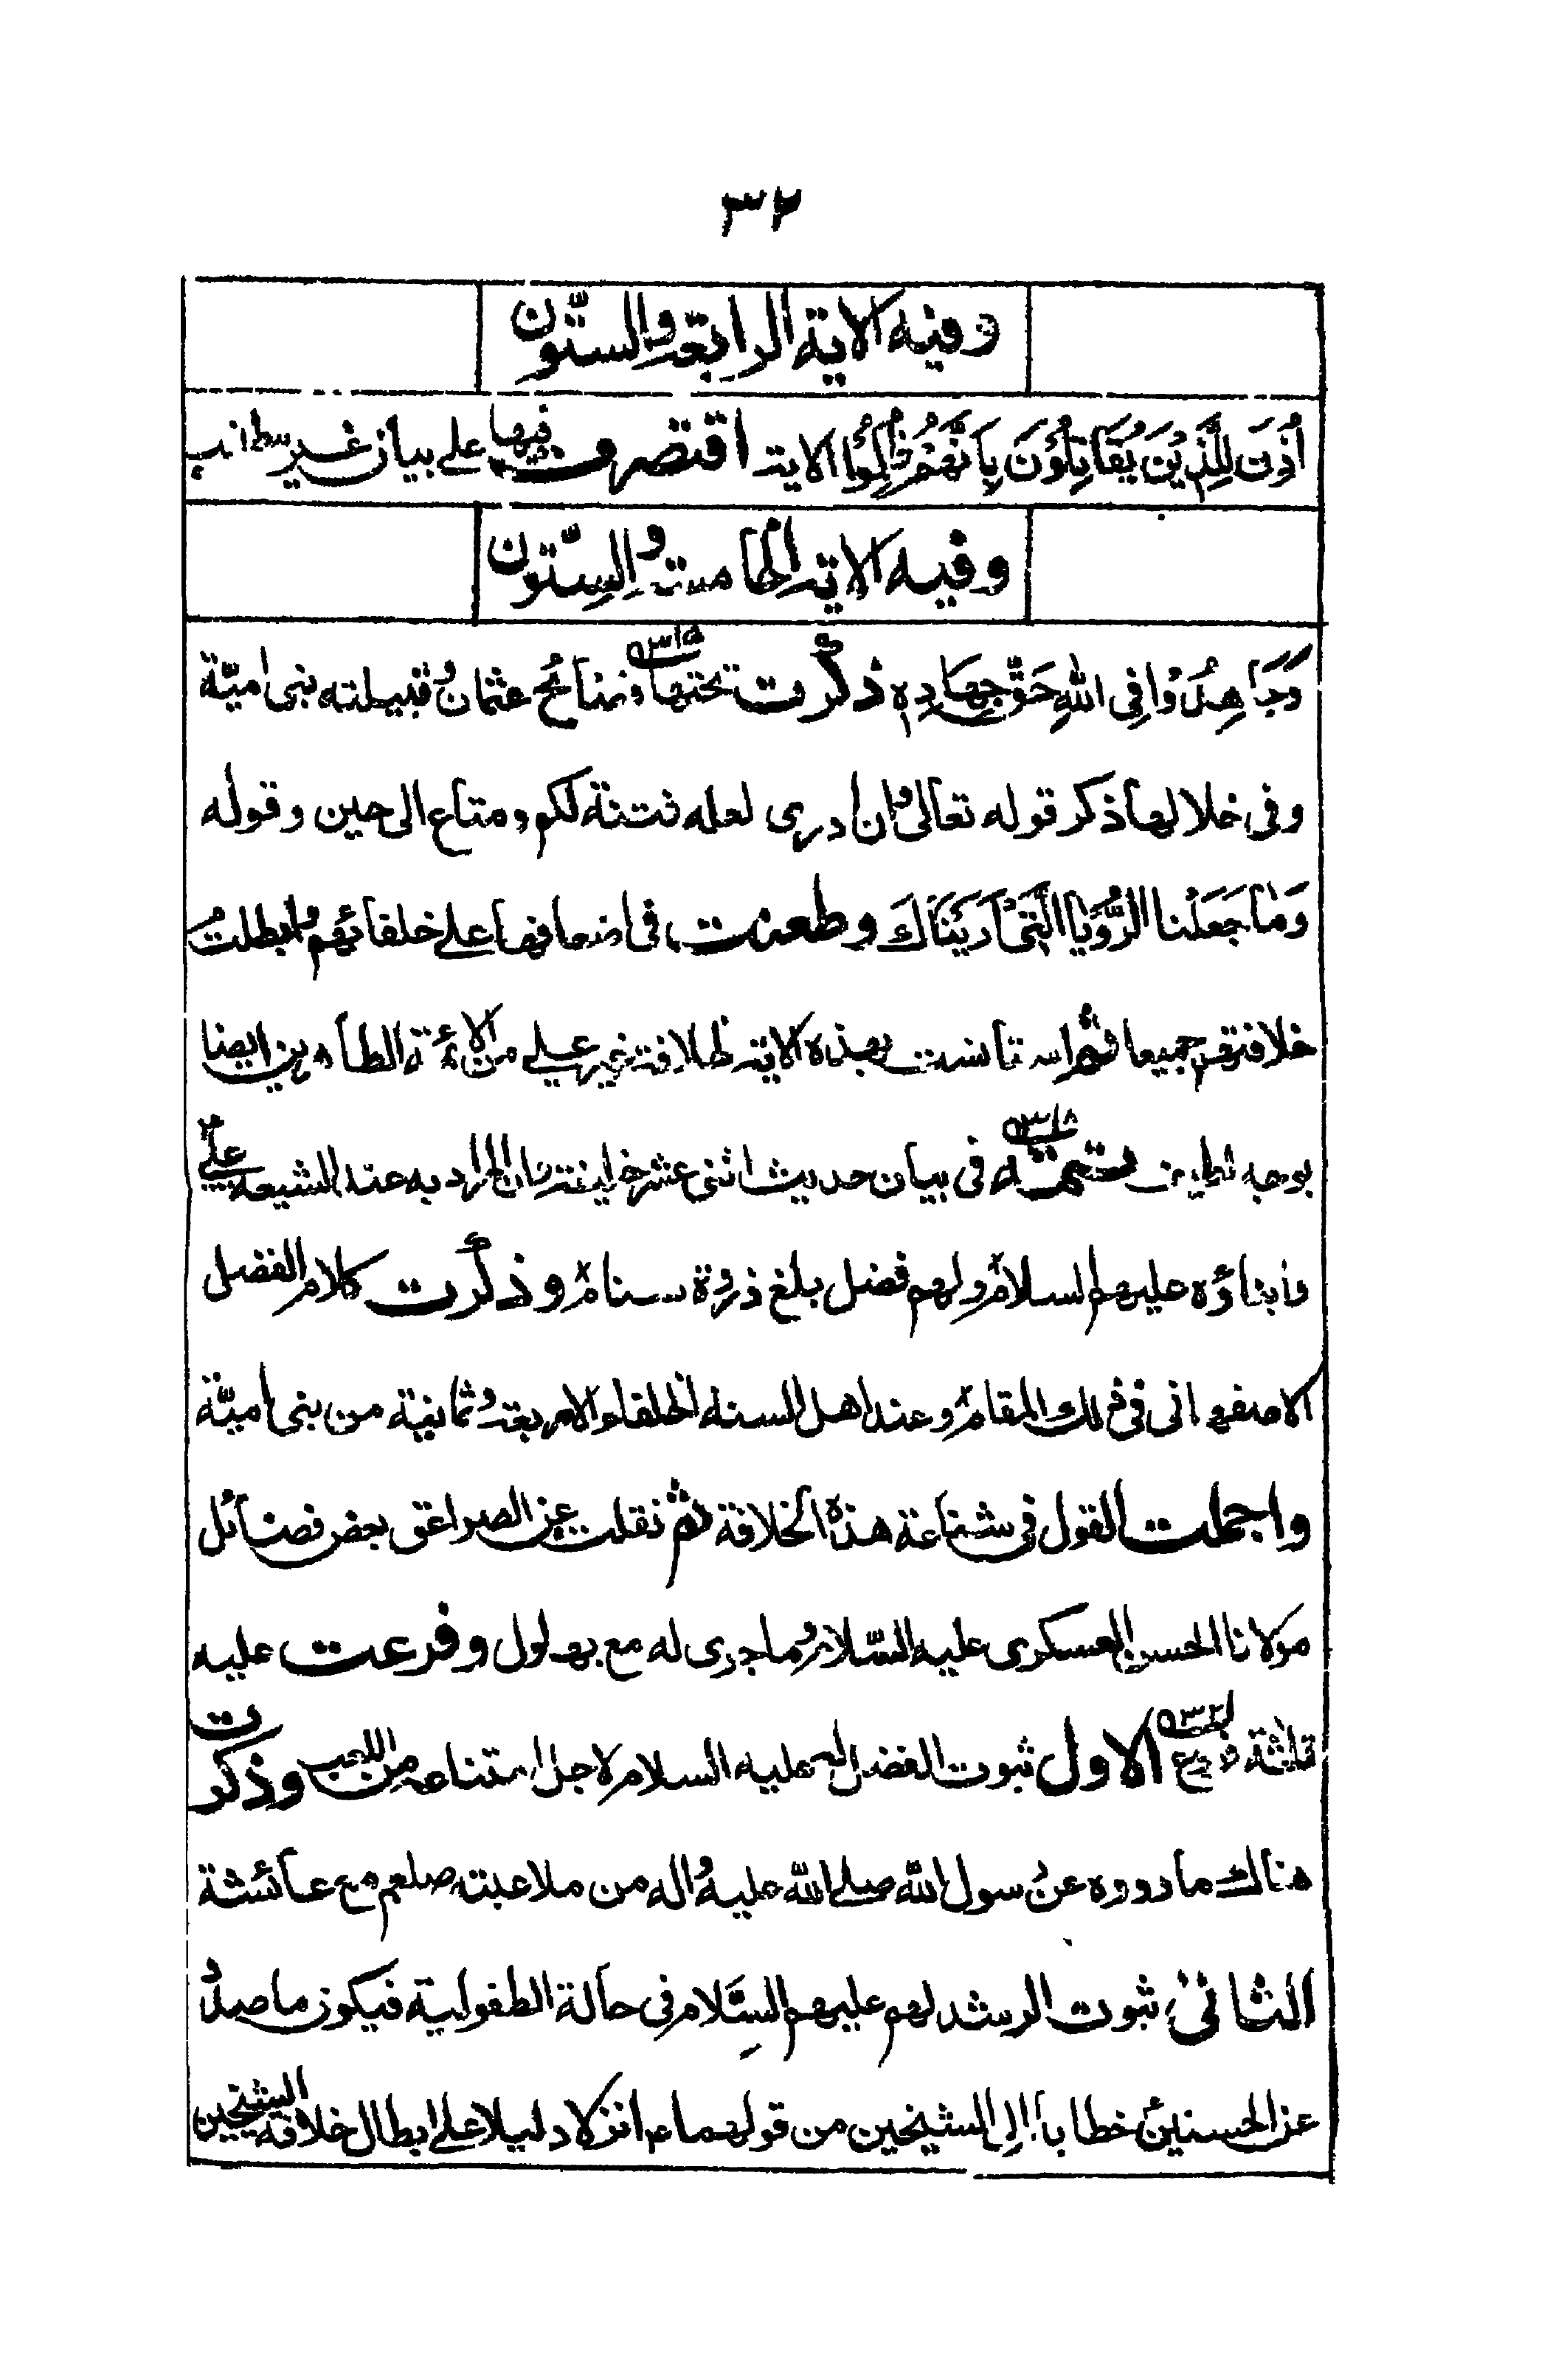 ٣٢
وفيه الاية الرابعة والستّون
اُذِنَ لِلَّذِيْنَ يُقَاتِلُوْنَ بِاَنَّهُمْ ظُلِمُوْا الاية اقتصرت فيها على بيان غير
وفيه الاية الخامسة والستّون
وَجَاهِدُوْا فِي اللهِ حَقَّ جِهَادِهٖ ذكرت تحتها ٥٣١٥ عثمان وقبيلته بنى اميّة
وفى خلالها ذكر قوله تعالى وان ادرى لعله فتنة لكم ومتاع الى حين وقوله
وَمَا جَعَلْنَا الرُّؤْيَا الَّتِىْ اَرَيْنَاكَ وطعنت فى اضعافها على خلفائهم وابطلت
خلافتهم جميعا ثم بهذه الاية لخلافة على من الائمة الطاهرين ايضا
بوجه لطيف تتمة ٥٣١٨ فى بيان حديث اثنى عشر خليفة وان المراد به عند الشيعة على
وابناؤه عليهم السلام ولهم فضل بلغ ذروة سنام وذكرت كلام الفضل
الاصفهانى فى ذلك المقام وعند اهل السنة الخلفاء الاربعة وثمانية من بنى اميّة
واجملت القول فى شناعة هذه الخلافة ثم نقلت عن الصواعق بعض فضائل
مولانا الحسن العسكرى عليه السّلام وما جرى له مع بهلول وفرعت عليه
ثلثة فروع ٥٣٢ الاول ثبوت الفضل له عليه السلام لاجل امتناعه من اللعب وذكرت
هناك ما رووه عن رسول الله صلى الله عليه واله من ملاعبته صلعم مع عائشة
الثانى ثبوت الرشد لهم عليهم السَّلام فى حالة الطفولية فيكون ما صدر
عن الحسنين خطابا الى الشيخين من قولهما انزلا دليلا على ابطال خلافة الشيخين